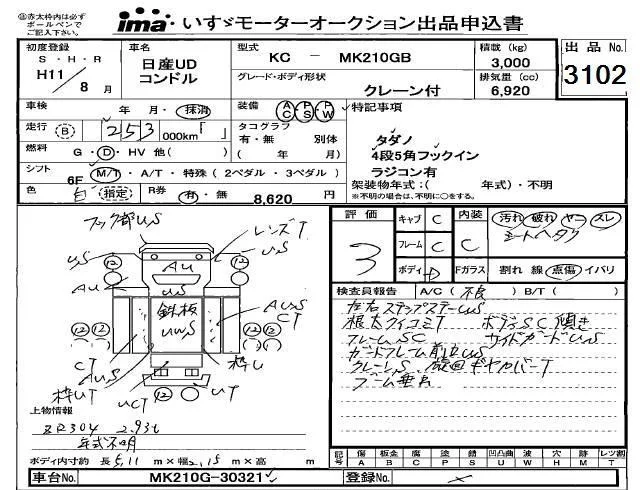 ㊟赤太枠内は必ず
ボールペンで
ご記入下さい。
ima いすゞモーターオークション出品申込書
初度登録 S・H・R H11/8月
車名 日産UD コンドル
型式 KC － MK210GB
グレード・ボディ形状 クレーン付
積載 (kg) 3,000
排気量 (cc) 6,920
出品 No. 3102
車検 年・月・抹消
走行 B 253 000km「 」
燃料 G・D・HV 他( )
シフト 6F M/T・A/T・特殊 (2ペダル・3ペダル)
色 白 指定 R券 有・無 8,620 円
装備 AC PS PW
タコグラフ 有・無 別体
( 年 月)
特記事項
タダノ
4段5角フックイン
ラジコン有
架装物年式:( 年式)・不明
※不明の場合は、不明に○をする。
フック部US
レンズT
US US
12 12
AU AU
US
鉄板
UWS
AUS
CT
12 12 12 12
CT
AUS
枠UT
枠U
UCT
12 12
UT
上物情報
ZR304 2.93t
年式不明
ボディ内寸約 長 5.11 m×幅 2.15 m×高 m
評価 3
キャブ C 内装 C
フレーム C
ボディ D Fガラス
汚れ 破れ ヤニ スレ
シートヘタリ
割れ 線 点傷 イバリ
検査員報告 A/C( 不良 ) B/T( )
左右ステップステーUS
根太クイコミT ボディSC傾き
フレームSC サイドガードUS
ガードフレーム前辺US
クレーンS、旋回ギヤカバーT
ブーム垂れ
記号 傷 板金 腐 塗 錆 凹凸曲 波 穴 外 レツ割
A B C P S U W H M T
車台No. MK210G-30321
登録No.